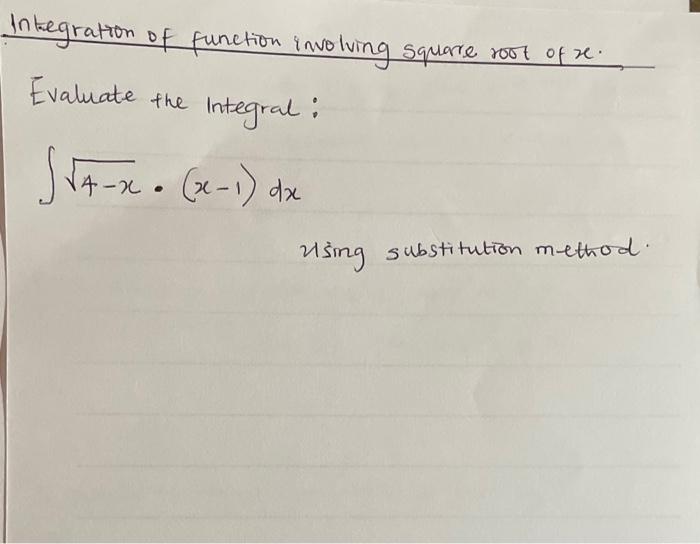 Integration of function involving square root of x.
Evaluate the Integral:
∫√4-x • (x-1) dx
Using substitution method.